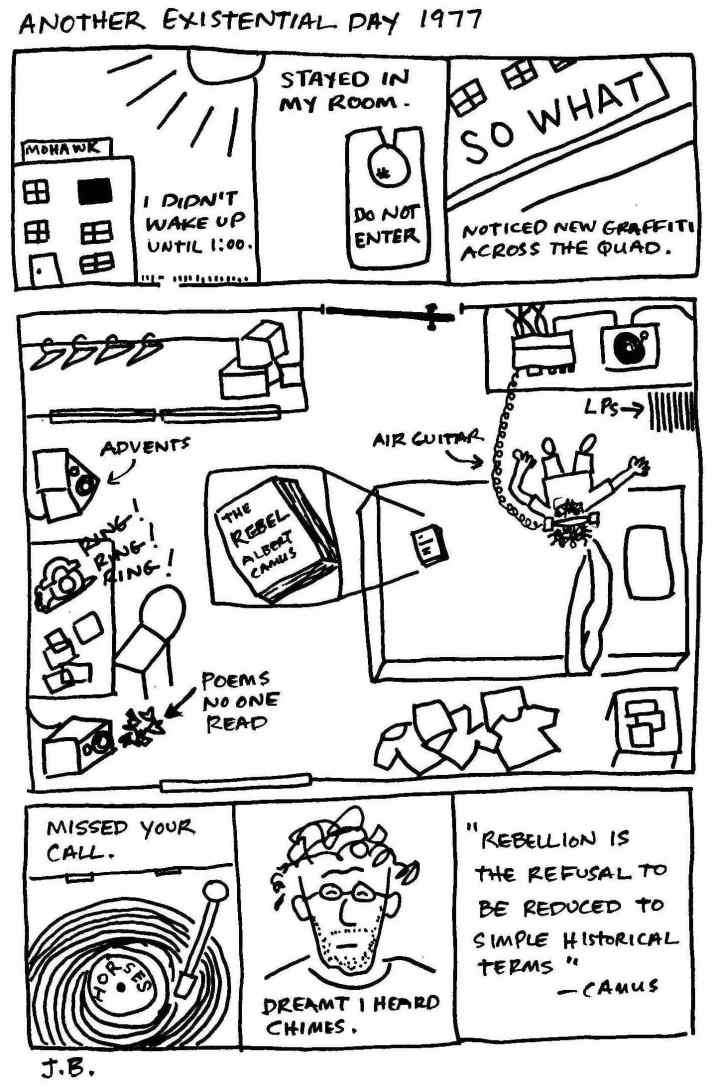 ANOTHER EXISTENTIAL DAY 1977
MOHAWK
I DIDN'T
WAKE UP
UNTIL 1:00.
STAYED IN
MY ROOM.
DO NOT
ENTER
SO WHAT
NOTICED NEW GRAFFITI
ACROSS THE QUAD.
LPs
AIR GUITAR
ADVENTS
THE
REBEL
ALBERT
CAMUS
RING!
RING!
RING!
POEMS
NO ONE
READ
MISSED YOUR
CALL.
HORSES
DREAMT I HEARD
CHIMES.
"REBELLION IS
THE REFUSAL TO
BE REDUCED TO
SIMPLE HISTORICAL
TERMS"
—CAMUS
J.B.